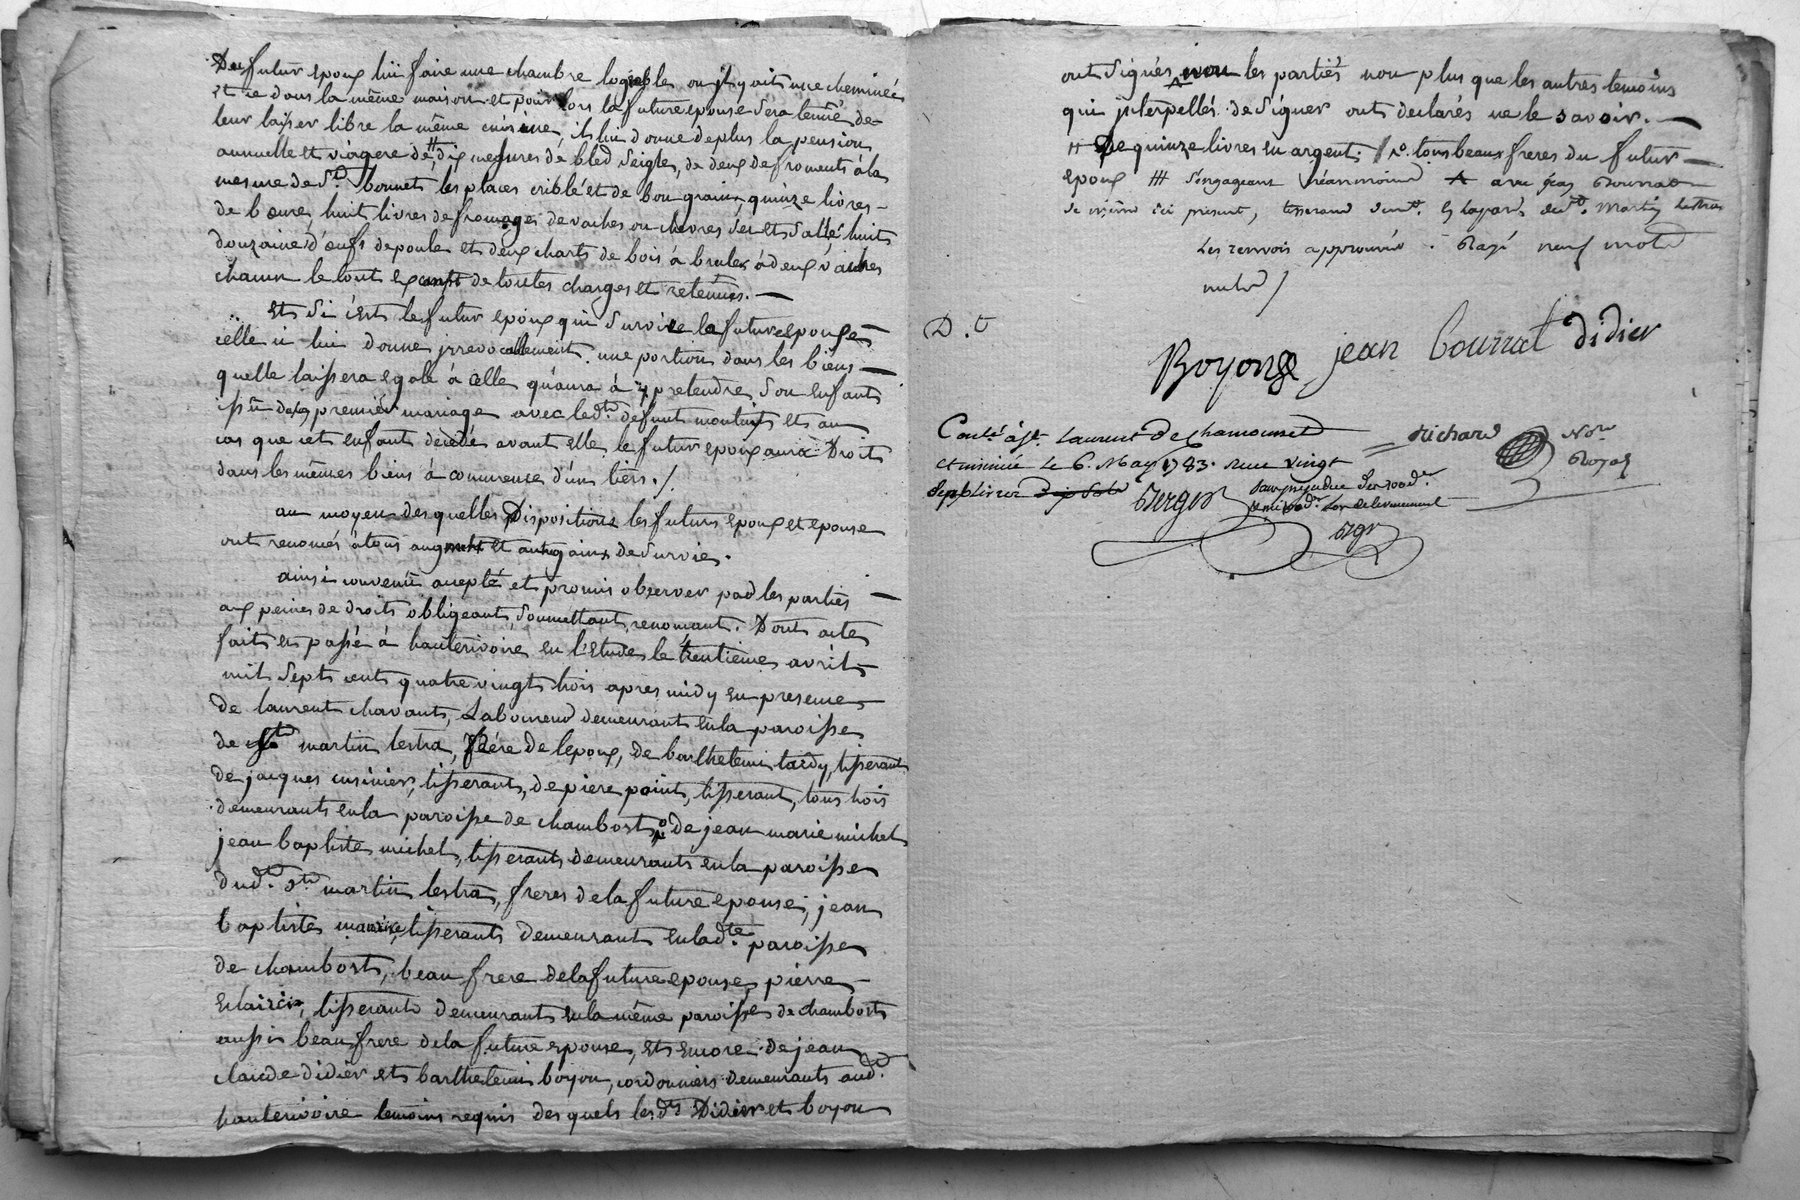 Du futur epoux lui faire une chambre logeable ou il y ait une cheminée
et ce dans la même maison et pour lors la future epouse sera tenüe de
leur laisser libre la même cuisine, ils lui donne de plus la pension
annuelle et viagere de # dix mesures de bled seigle, de deux de froments à la
mesure de St. bonnet les places criblé et de bon grain, quinze livres
de beure, huit livres de fromages de vaches ou chevres sec et sallé huits
douzaine d'œufs de poule et deux charts de bois à bruler à deux vaches
chacun le tout exempt de toutes charges et retenües.
Et si c'est le futur epoux qui survive la future epouse
celle ci lui donne irrevocablement une portion dans les biens
quelle laissera egale à celle qu'aura à y pretendre son enfant
issu du premier mariage avec led. defunt et au
cas que cet enfant decede avant elle le futur epoux aura Droit
dans les mêmes biens à concurence d'un tiers ./.
au moyen des quelles Dispositions les futurs epoux et epouse
ont renoncés à tous augment et autres gains de survie.
ainsi convenü accepté et promis observer par les parties
aux peines de droits obligeant, soumettant, renonçant. Dont acte
fait et passé à hauterivoire en l'etude le trentieme avril
mil sept cents quatre vingt trois apres midy en presence
de laurent chavant, Laboureur demeurant en la paroisse
de St martin lestra, frére de lepoux, de barthelemi tardy, tisserant
de jacques cusinier, tisserant, de piere point, tisserant, tous trois
demeurants en la paroisse de chambost, de jean marie michel
jean baptiste michel, tisserants demeurants en la paroisse
dud. St. martin lestra, freres de la future epouse, jean
baptiste tisserants demeurant en lad.te paroisse
de chambost, beau frere de la future epouse, pierre
tisserant demeurants en la même paroisse de chambost
aussi beau frere de la future epouse, et encore de jean
claude didier et barthelemi boyon, cordonniers demeurants aud.
hauterivoire temoins requis des quels les d.ts Didier et boyon
ont signés non les parties non plus que les autres temoins
qui interpellés de signer ont declarés ne le savoir.
# De quinze livres en argent; / tous beaux freres du futur
epoux ### s'engageant néanmoins avec jean Bourrat
ici present, tisserand Martin Lestra
Les renvois approuvés . Rayé neuf mots
nuls /
D. t
Boyon jean bourrat didier
Contlé à St. Laurent de Chamousset
et insinué le 6. May 1783. Reçu vingt
sept livres dix sols
Richard
Nore
Royal